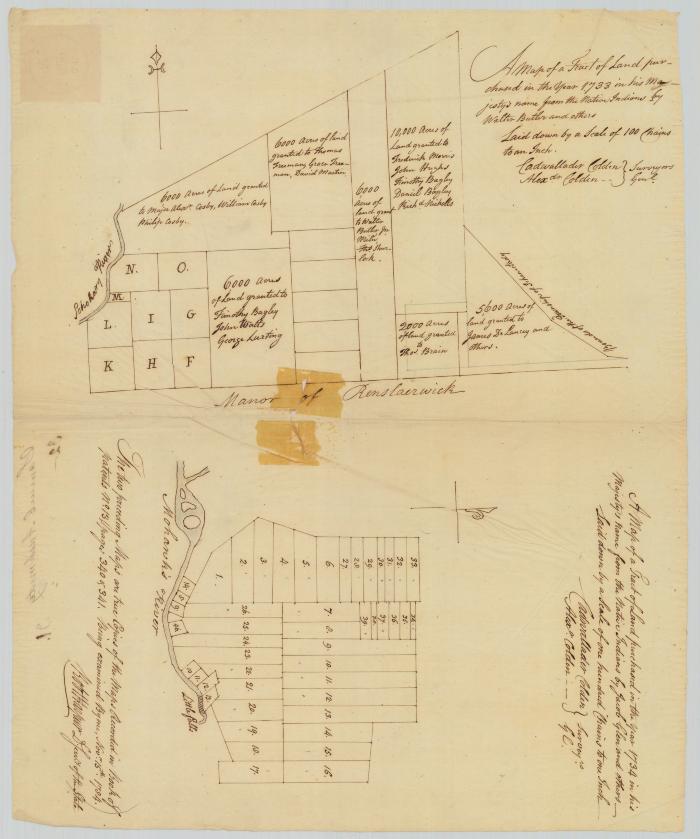 A Map of a Tract of Land pur-
chased in the Year 1733 in his Ma-
jesty's name from the Native Indians by
Walter Butler and others
Laid down by a Scale of 100 Chains
to an Inch.
Cadwallader Colden } Surveyors
Alexdr Colden } Genl.
6000 Acres of Land granted
to Major Alexr. Cosby, William Cosby
Philip Cosby.
6000 Acres of land
granted to Thomas
Freeman, Grace Free-
man, David Martin
6000
Acres
of land
grant
to Walter
Butler Jr
10,000 Acres of
Land granted to
Frederick Morris
John
Timothy Bagley
Daniel Bagley
& Richd Nicholls
Schohary River
N. O.
M.
L. I G
K H F
6000 Acres
of Land granted to
Timothy Bagley
John Watts
George Lurting
2000 Acres
of land granted
to
Thos Brain
5,600 Acres of
land granted to
James De Lancey and
Others.
Manor of Renslaerwick
A Map of a Tract of Land Purchased in the Year 1734 in his
Majesty's name from the Native Indians by Jacob Glen and others.
Laid down by a Scale of one hundred Chains to one Inch
Cadwallader Colden } Surveyrs
Alexr Colden } Gl.
Mohawk's River
Little Falls
1. 2. 3. 4. 5. 6. 27. 28. 29. 30. 31. 32. 33.
26. 7.
25. 8. 39. 38. 37. 36. 35. 34.
24. 9.
23. 10.
22. 11.
21. 12.
20. 13.
19. 14.
18. 15.
17. 16.
The two preceding Maps are true Copies of the Maps Recorded in Book of
Patents No. 13 (pages 340 & 341. Being examined By me, Novr. 15th 1794.
Robt Harpur D. Secy of the State.